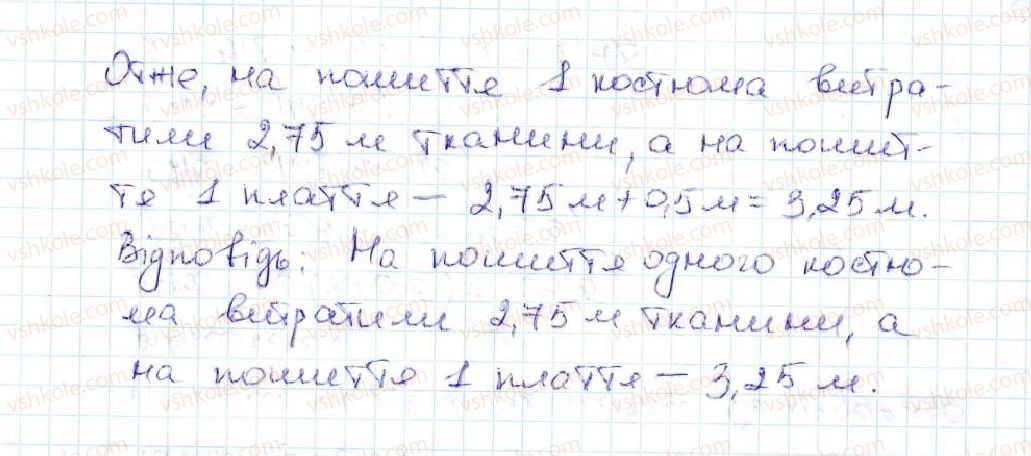 Отже, на пошиття 1 костюма витра-
тили 2,75 м тканини, а на пошит-
тя 1 плаття — 2,75 м + 0,5 м = 3,25 м.
Відповідь: На пошиття одного костю-
ма витратили 2,75 м тканини, а
на пошиття 1 плаття — 3,25 м.
vshkole.com